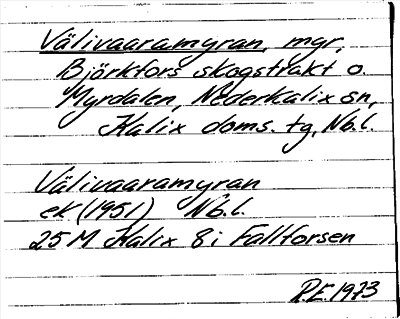 Välivaaramyran, myr,
Björkfors skogstrakt o.
Myrdalen, Nederkalix sn,
Kalix doms. tg, Nb.l.
Välivaaramyran
ek (1951) Nb.l.
25 M Kalix 8 i Fällforsen
R.E. 1973